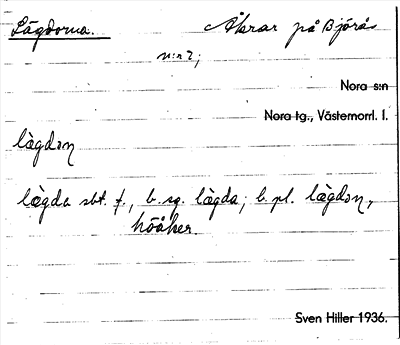 Lägdorna. Åkrar på Björås
n:r 2;
Nora s:n
Nora tg., Västernorrl. l.
lägdəɳ
lægda sbt. f., b. sg. lägda; b. pl. lägdəɳ,
höåker.
Sven Hiller 1936.